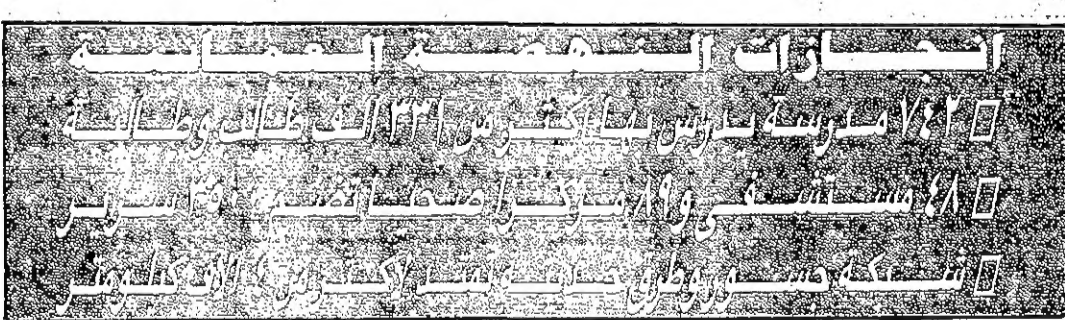 انجازات النهضة العمانية
□ ٧٤٢ مدرسة يدرس بها اكثر من ٣٣١ الف طالب وطالبة
□ ٤٨ مستشفى و٨٩ مركزا صحيا تضم سرير
□ شبكة جسور وطرق حديثة تمتد لاكثر من الاف كيلومتر